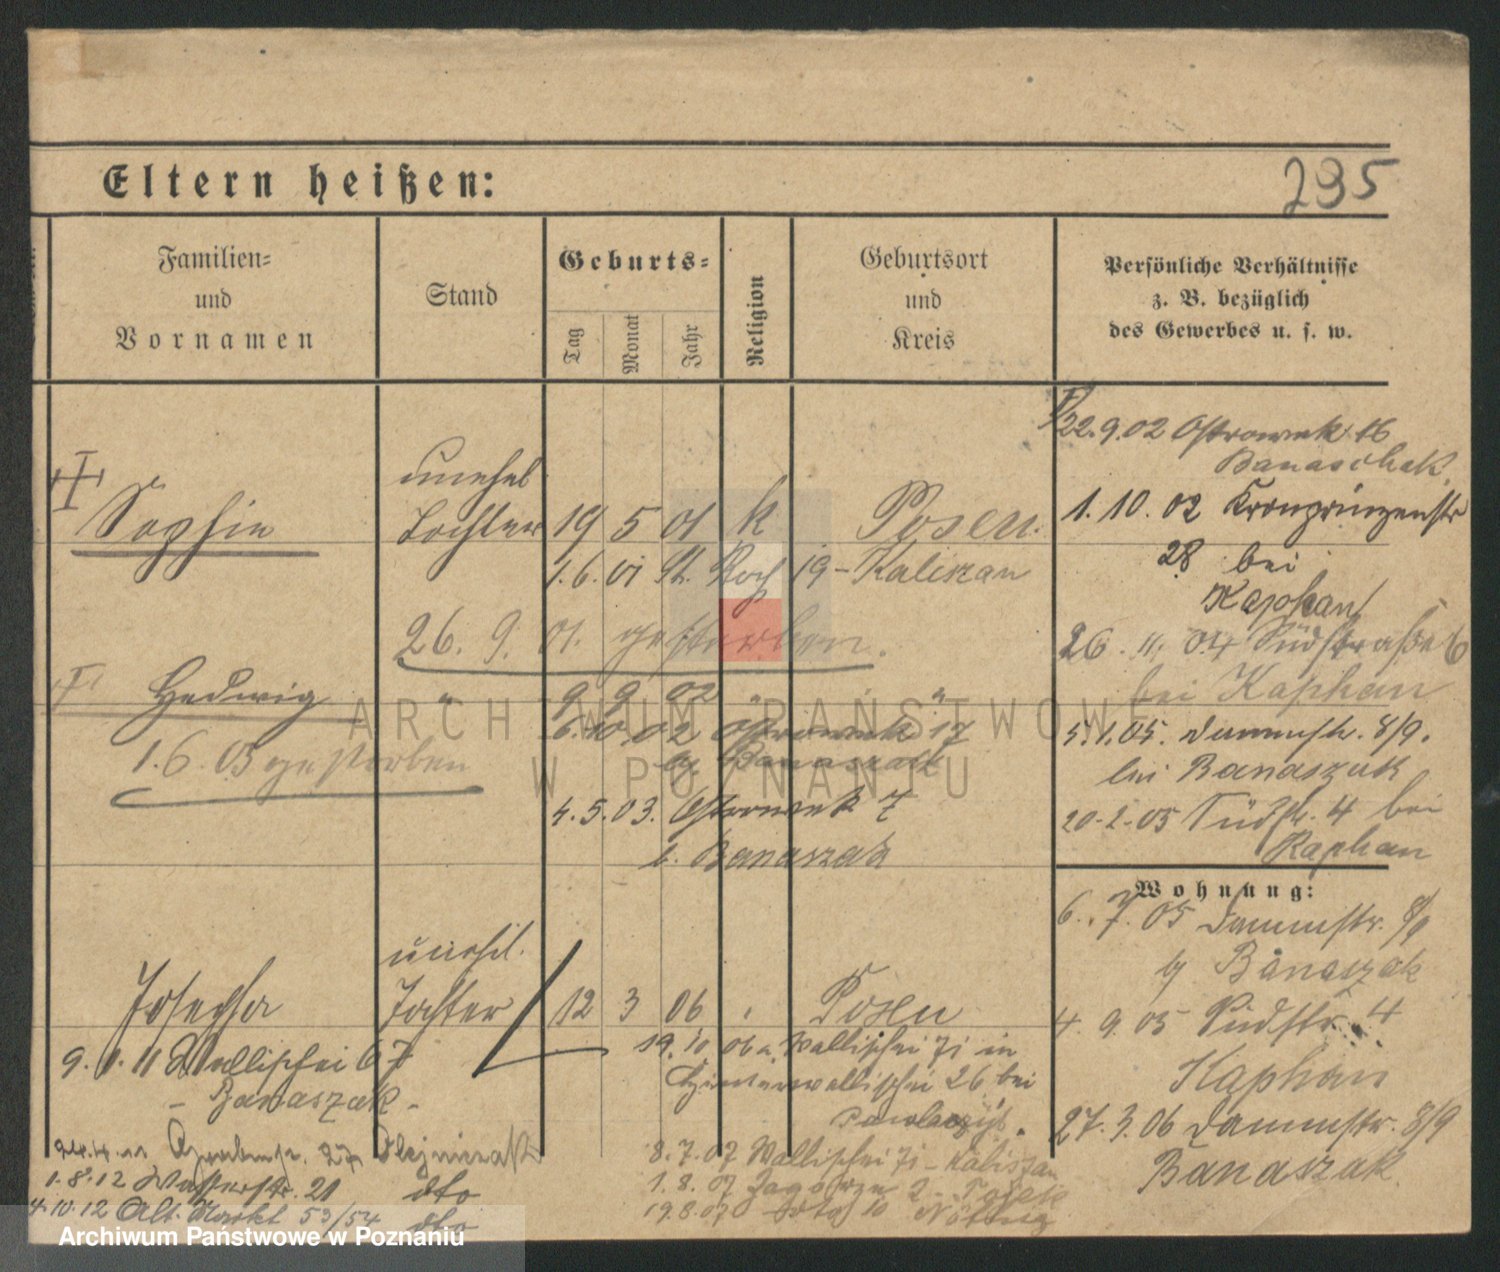 Eltern heißen:
295
Familien=
und
Vornamen
Stand
Geburts=
Tag
Monat
Jahr
Religion
Geburtsort
und
Kreis
Persönliche Verhältnisse
z. B. bezüglich
des Gewerbes u. s. w.
22.9.02 Ostrowek 16
Banaschak
1.10.02 Kronprinzenstr
28 bei
Kaphan
26. 11. 04 Südstraße 6
bei Kaphan
5.1.05. Dammstr. 8/9.
bei Banaszak
20.2.05 Südstr. 4 bei
Kaphan
unehel
Sophie Tochter 19 5 01 k Posen.
1.6.01 St. Roch 19 – Kaliszan
26. 9. 01. gestorben.
Hedwig " 9 9 02 " "
6.10.02 Ostrowek 17
b. Banaszak
1.6.03 gestorben
4.5.03. Ostrowek 7
b. Banaszak
Wohnung:
6. 7. 05 Dammstr. 8/9
b Banaszak
4. 9. 05 Südstr. 4
Kaphan
27.3.06 Dammstr. 8/9
Banaszak
unehel.
Josepha Tochter 12 3 06 Posen
19.10 06 Wallischei 71 in
Hinterwallischei 26 bei
9. 1. 11 Wallischei 67
– Banaszak –
8.7.07 Wallischei 71 – Kaliszan
1.8.07 Zagorze 2
19.8.07
24.4.11 27 Olejniczak
1.8.12 Wasserstr. 21 dto
4.10.12 Alt. Markt 53/54 dto
ARCHIWUM PAŃSTWOWE
W POZNANIU
Archiwum Państwowe w Poznaniu